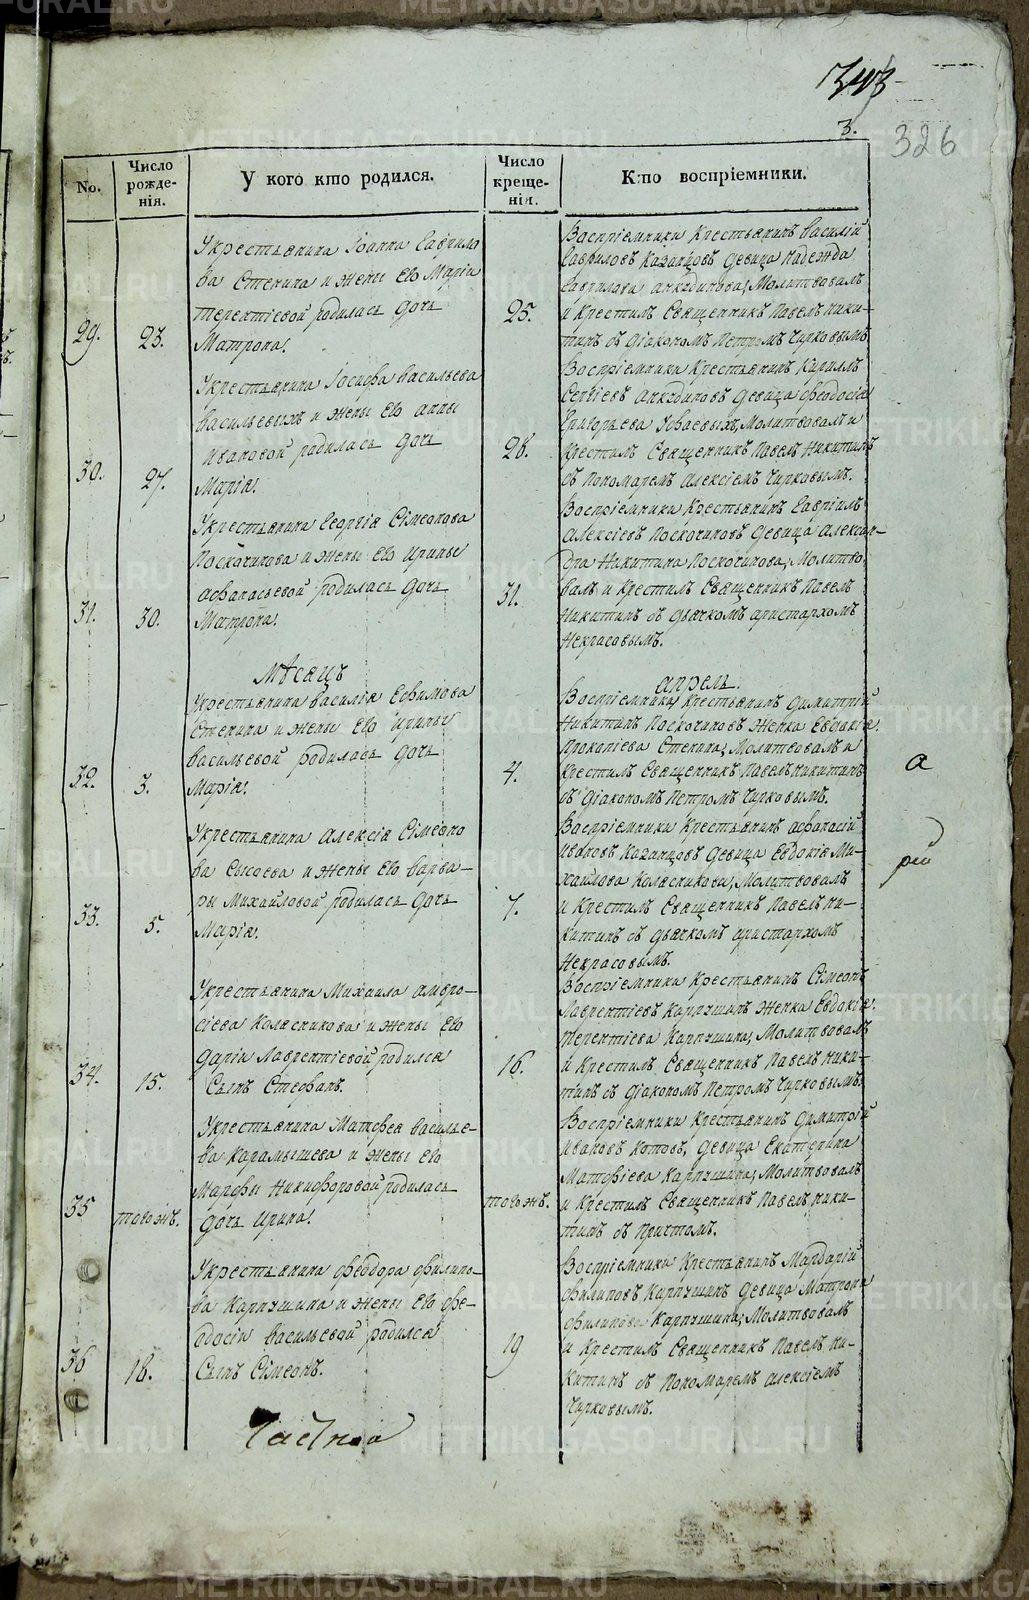 343
3.
326
No.
Число рожденія.
У кого кто родился.
Число крещенія.
Кто воспріемники.
29.
23.
У крестьянина Іоанна Гаврило
ва Стенина и жены его Маріи
Терентіевой родилась дочь
Матрона.
25.
Воспріемники крестьянинъ Василій
Гавриловъ Казанцовъ девица Надежда
Молитвовалъ
и крестилъ Священникъ Павелъ Ники-
тинъ съ діакономъ Петромъ Чирковымъ.
30.
27.
У крестьянина Іосифа Васильева
Васильевыхъ и жены его Анны
Ивановой родилась дочь
Марія.
28.
Воспріемники крестьянинъ Кириллъ
Сергіевъ девица Феодосія
Григорьева Молитвовалъ и
крестилъ Священникъ Павелъ Никитинъ
съ пономаремъ Алексіемъ Чирковымъ.
31.
30.
У крестьянина Георгія Сімеонова
Поскочинова и жены его Ирины
Афанасьевой родилась дочь
Матрона.
31.
Воспріемники крестьянинъ Гавріилъ
Алексіевъ Поскочиновъ девица Алексан-
дра Никитина Поскочинова, Молитво-
валъ и крестилъ Священникъ Павелъ
Никитинъ съ дьячкомъ Аристархомъ
Некрасовымъ.
Мѣсяцъ
апрель.
32.
3.
У крестьянина Василія Ефимова
Стенина и жены его Ирины
Васильевой родилась дочь
Марія.
4.
Воспріемники крестьянинъ Димитрій
Никитинъ Поскочиновъ женка Евдокія
Прокапіева Стенина, Молитвовалъ и
крестилъ Священникъ Павелъ Никитинъ
съ діакономъ Петромъ Чирковымъ.
а
33.
5.
У крестьянина Алексія Сімеоно
ва Сысоева и жены его Варва-
ры Михайловой родилась дочь
Марія.
7.
Воспріемники крестьянинъ Афанасій
Ивановъ Казанцовъ девица Евдокія Ми-
хайлова Колясникова, Молитвовалъ
и крестилъ Священникъ Павелъ Ни-
китинъ съ дьячкомъ Аристархомъ
Некрасовымъ.
рей
34.
15.
У крестьянина Михаила Амвро-
сіева Колясникова и жены его
Даріи Лаврентіевой родился
сынъ Стефанъ.
16.
Воспріемники крестьянинъ Сімеонъ
Лаврентіевъ Карпушинъ женка Евдокія
Терентіева Карпушина, Молитвовалъ
и крестилъ Священникъ Павелъ Ники-
тинъ съ діакономъ Петромъ Чирковымъ.
35
тогожъ.
У крестьянина Матфея Василье-
ва Карамышева и жены его
Марфы Никифоровой родилась
дочь Ирина.
тогожъ.
Воспріемники крестьянинъ Димитрій
Ивановъ Котовъ, девица Екатерина
Матфіева Карпушина, Молитвовалъ
и крестилъ Священникъ Павелъ Ники-
тинъ съ причтомъ.
36
18.
У крестьянина Феодора Филипо-
ва Карпушина и жены его Фе-
досіи Васильевой родился
сынъ Сімеонъ.
19
Воспріемники крестьянинъ Мардарій
Филиповъ Карпушинъ девица Матрона
Филипова Карпушина, Молитвовалъ
и крестилъ Священникъ Павелъ Ни-
китинъ съ пономаремъ Алексіемъ
Чирковымъ.
METRIKI.GASO-URAL.RU